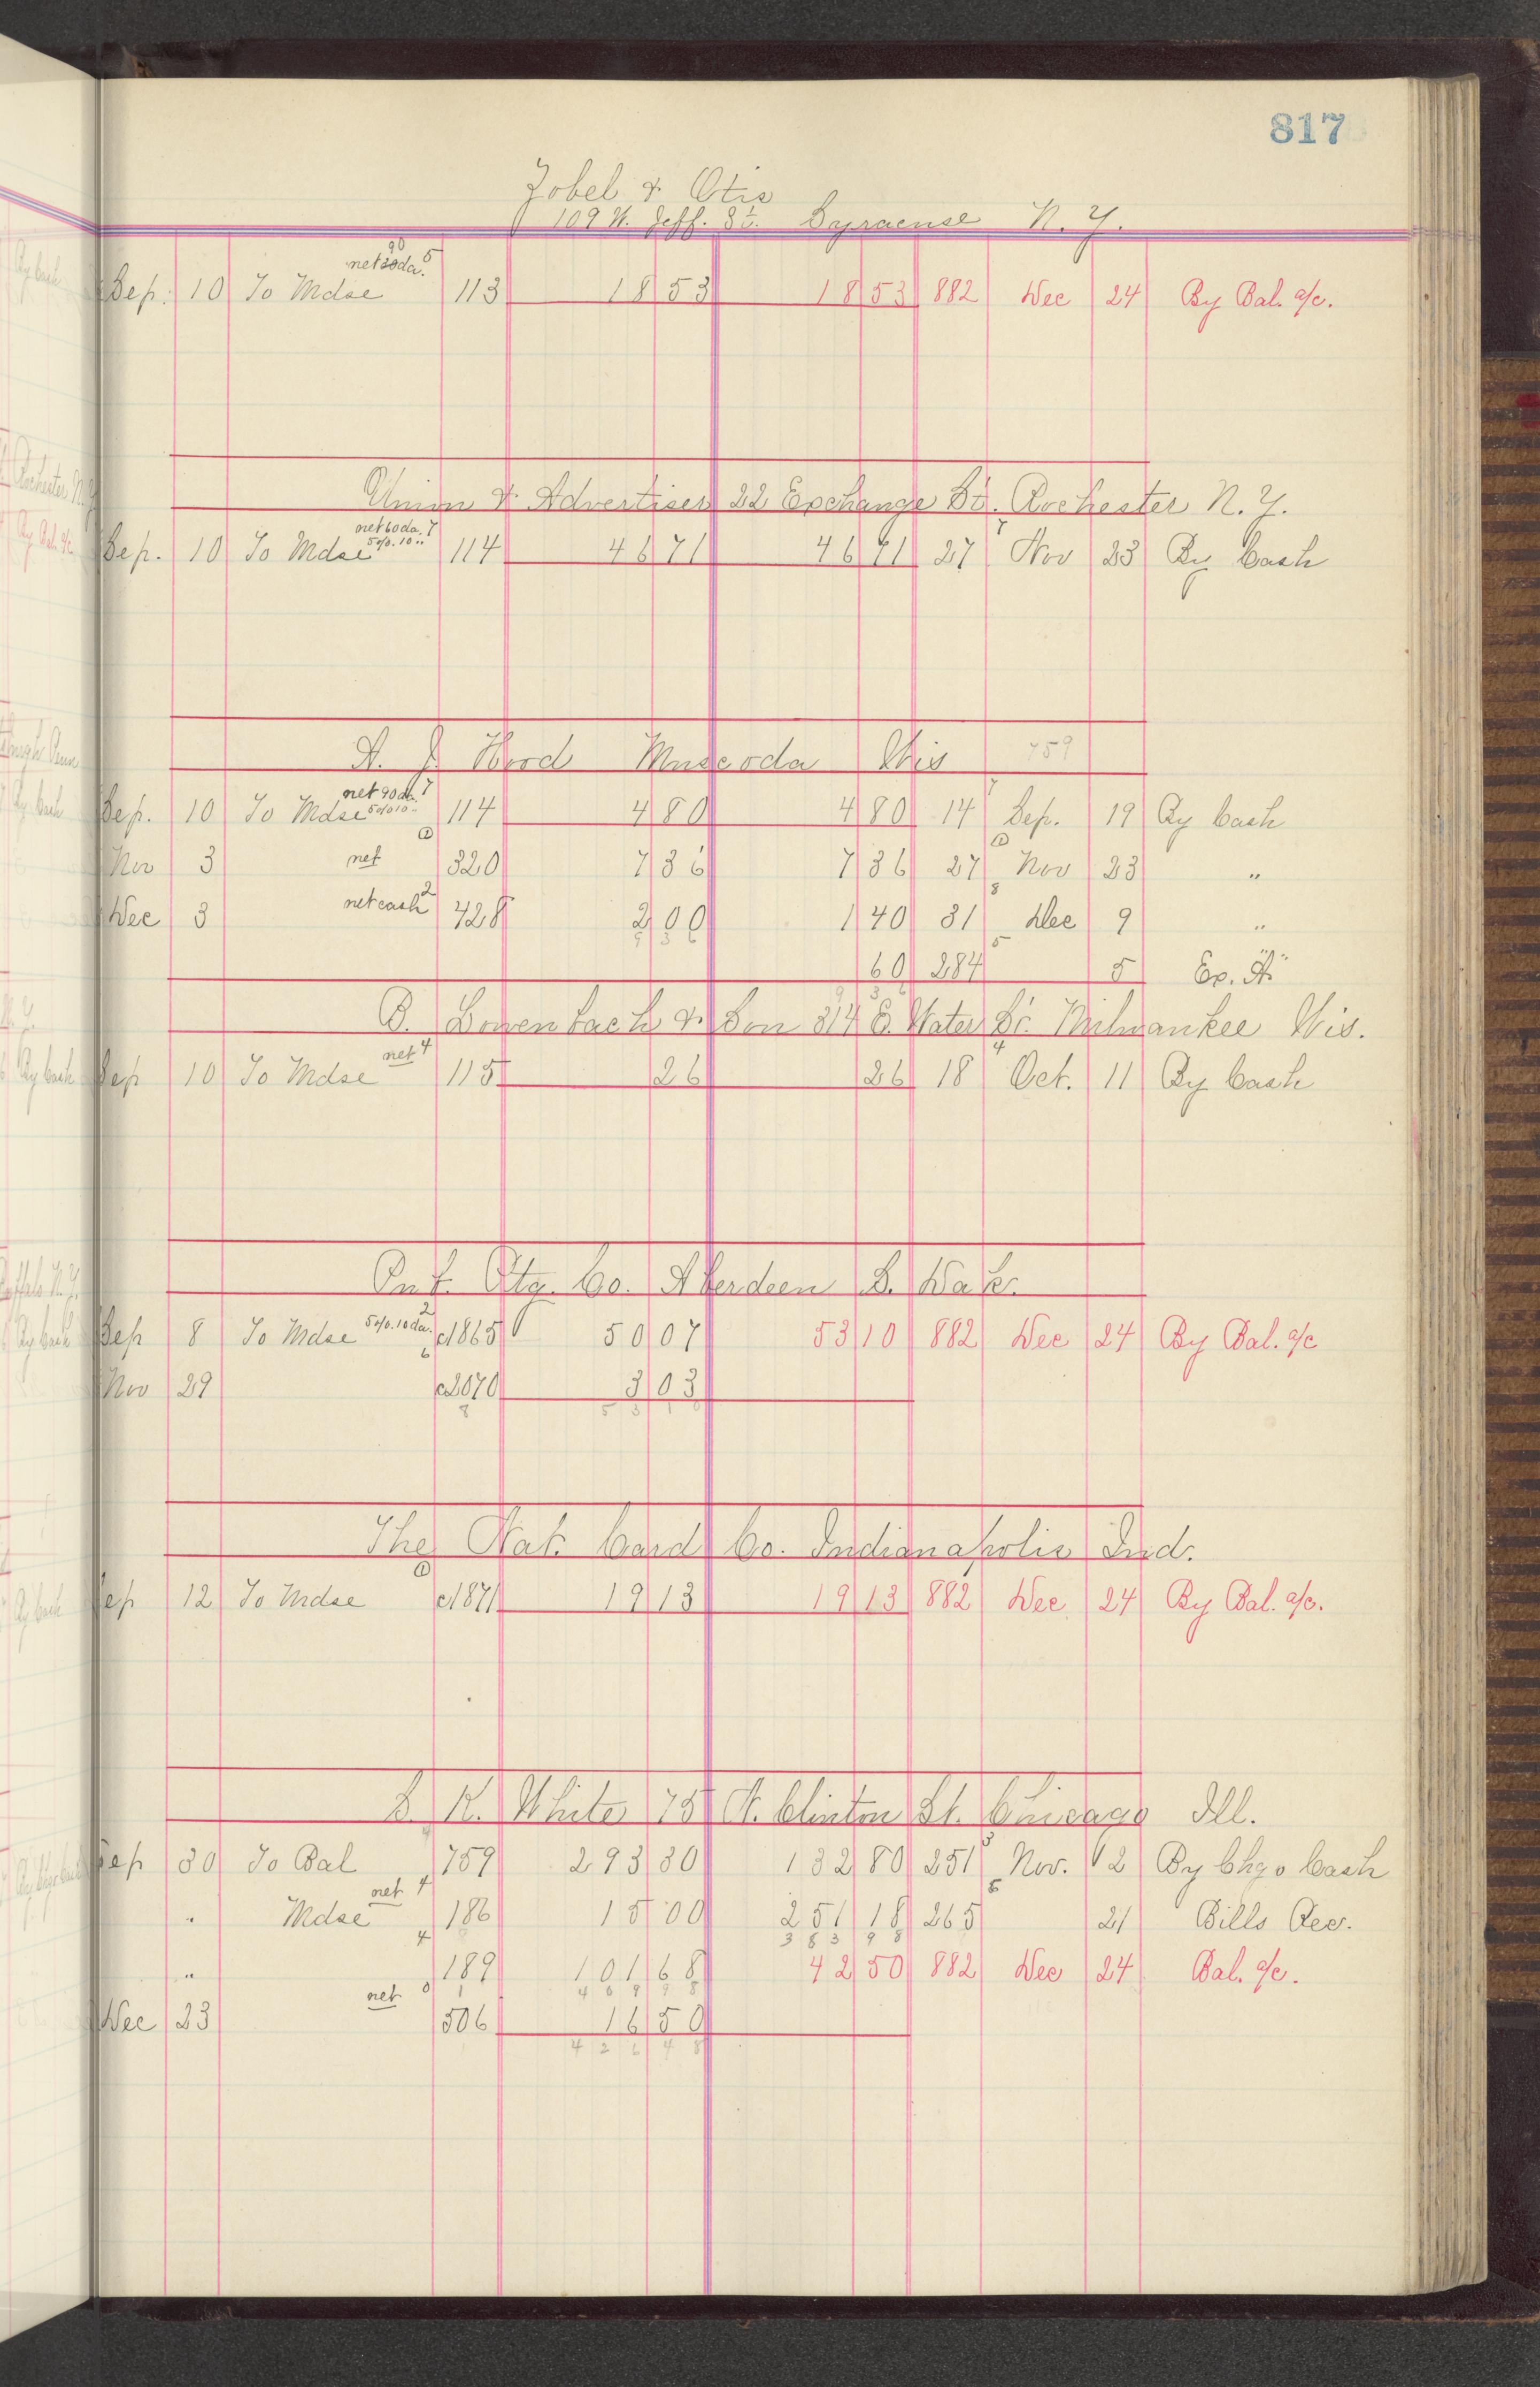 817
Zobel & Otis
109 W. Jeff. St. Syracuse N. Y.
90
net 30 da. 5
Sep. 10 To Mdse 113 18 53 18 53 882 Dec 24 By Bal. a/c.
Union & Advertiser 22 Exchange St. Rochester N. Y.
net 60 da. 7
5 o/o. 10 "
Sep. 10 To Mdse 114 46 71 46 71 27 7 Nov 23 By Cash
A. J. Hood Muscoda Wis 759
net 90 da. 7
Sep. 10 To Mdse 5 o/o 10 " 114 4 80 4 80 14 7 Sep. 19 By Cash
Nov 3 net 1 320 7 36 7 36 27 1 Nov 23 "
Dec 3 net cash 2 428 2 00 1 40 31 8 Dec 9 "
9 3 6
60 284 5 5 Ex. "A"
9 3 6
B. Lowenbach & Son 314 E. Water St. Milwaukee Wis.
net 4
Sep 10 To Mdse 115 26 26 18 4 Oct. 11 By Cash
Ptg. Co. Aberdeen S. Dak.
Sep 8 To Mdse 5 o/o. 10 da. 2 c1865 50 07 53 10 882 Dec 24 By Bal. a/c
Nov 29 6 c2070 3 03
8 5 3 1 0
The Nat. Card Co. Indianapolis Ind.
1
Sep 12 To Mdse c1871 19 13 19 13 882 Dec 24 By Bal. a/c.
S. K. White 75 N. Clinton St. Chicago Ill.
Sep 30 To Bal 759 293 30 132 80 251 3 Nov. 12 By Chgo Cash
" Mdse net 4 186 15 00 251 18 265 6 21 Bills Rec.
3 8 3 9 8
" 4 189 101 68 42 50 882 Dec 24 Bal. a/c.
4 0 9 9 8
Dec 23 net 0 506 16 50
4 2 6 4 8